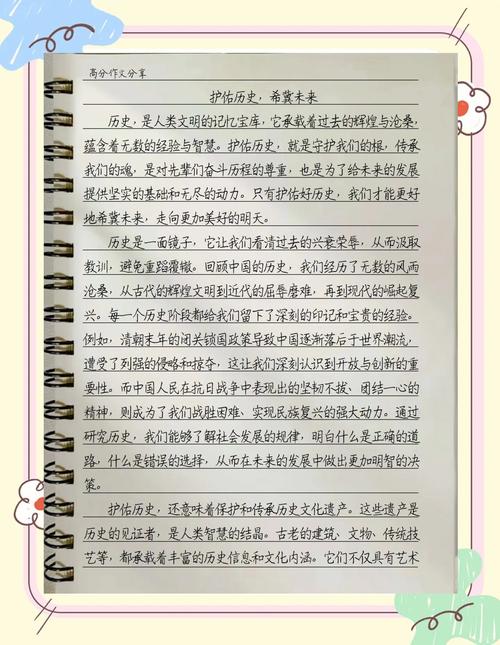 高分作文分享
护佑历史，希冀未来
历史，是人类文明的记忆宝库，它承载着过去的辉煌与沧桑，
蕴含着无数的经验与智慧。护佑历史，就是守护我们的根，传承
我们的魂，是对先辈们奋斗历程的尊重，也是为了给未来的发展
提供坚实的基础和无尽的动力。只有护佑好历史，我们才能更好
地希冀未来，走向更加美好的明天。
历史是一面镜子，它让我们看清过去的兴衰荣辱，从而汲取
教训，避免重蹈覆辙。回顾中国的历史，我们经历了无数的风雨
沧桑，从古代的辉煌文明到近代的屈辱磨难，再到现代的崛起复
兴。每一个历史阶段都给我们留下了深刻的印记和宝贵的经验。
例如，清朝末年的闭关锁国政策导致中国逐渐落后于世界潮流，
遭受了列强的侵略和掠夺，这让我们深刻认识到开放与创新的重
要性。而中国人民在抗日战争中表现出的坚韧不拔、团结一心的
精神，则成为了我们战胜困难、实现民族复兴的强大动力。通过
研究历史，我们能够了解社会发展的规律，明白什么是正确的道
路，什么是错误的选择，从而在未来的发展中做出更加明智的决
策。
护佑历史，还意味着保护和传承历史文化遗产。这些遗产是
历史的见证者，是人类智慧的结晶。古老的建筑、文物、传统技
艺等，都承载着丰富的历史信息和文化内涵。它们不仅具有艺术